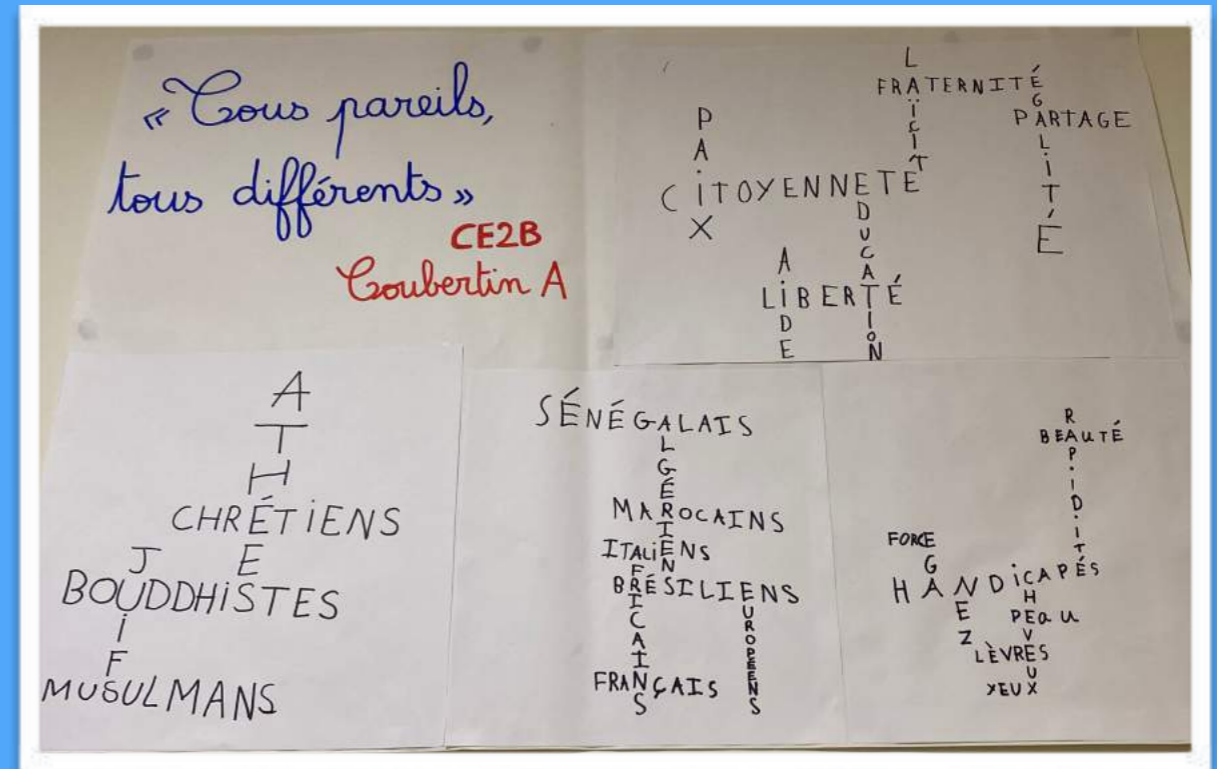 « Tous pareils,
tous différents »
CE2B
Coubertin A
LAÏCITÉ
FRATERNITÉ
ÉGALITÉ
PARTAGE
PAiX
CiTOYENNETÉ
EDUCATION
AiDE
LiBERTÉ
ATHÉES
CHRÉTiENS
JUiFS
BOUDDHiSTES
MUSULMANS
SÉNÉGALAIS
ALGÉRIENS
MAROCAINS
ITALiENS
AFRICAINS
BRÉSILIENS
EUROPEENS
FRANÇAIS
RAPiDiTÉ
BEAUTÉ
FORCE
G
HANDiCAPÉS
NEZ
CHEVEUX
PEau
LÈVRES
YEUX